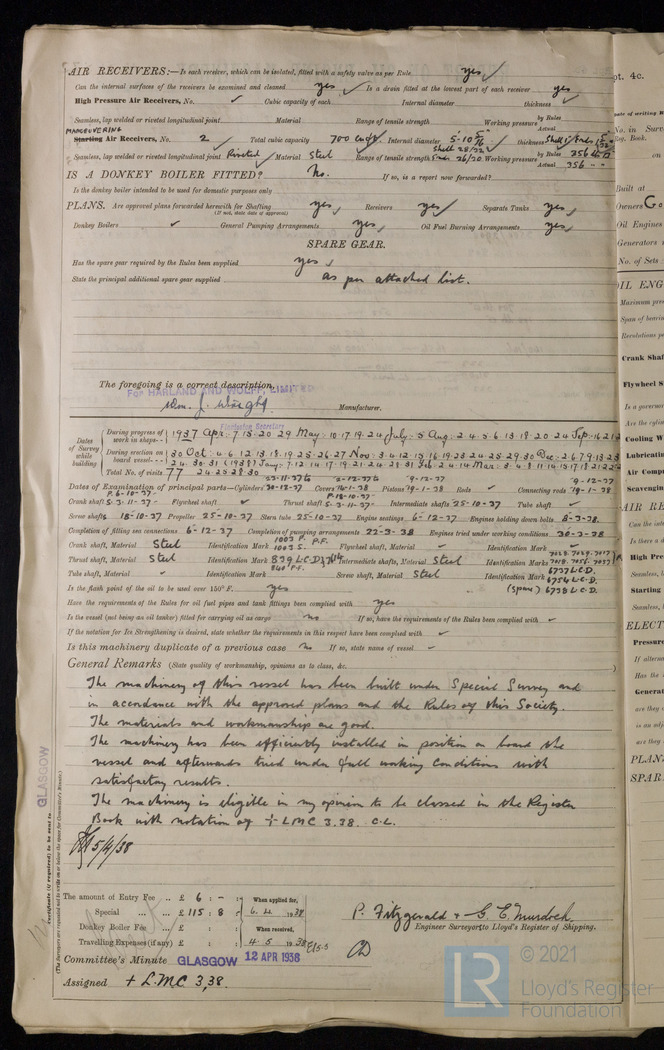 AIR RECEIVERS:—Is each receiver, which can be isolated, fitted with a safety valve as per Rule yes ✓
Can the internal surfaces of the receivers be examined and cleaned yes ✓ Is a drain fitted at the lowest part of each receiver yes ✓
High Pressure Air Receivers, No. ✓ Cubic capacity of each Internal diameter thickness ✓
Seamless, lap welded or riveted longitudinal joint Material Range of tensile strength Working pressure by Rules Actual
MANOEUVERING
Starting Air Receivers, No. 2 Total cubic capacity 700 cu ft Internal diameter thickness
Seamless, lap welded or riveted longitudinal joint Riveted Material Steel Range of tensile strength Shell 28/32 Ends 26/30 Working pressure by Rules 356 Actual 356
IS A DONKEY BOILER FITTED? No. If so, is a report now forwarded?
Is the donkey boiler intended to be used for domestic purposes only
PLANS. Are approved plans forwarded herewith for Shafting yes ✓ Receivers yes ✓ Separate Tanks yes ✓
(If not, state date of approval)
Donkey Boilers ✓ General Pumping Arrangements yes ✓ Oil Fuel Burning Arrangements yes ✓
SPARE GEAR.
Has the spare gear required by the Rules been supplied yes ✓
State the principal additional spare gear supplied as per attached list.
The foregoing is a correct description,
For HARLAND AND WOLFF, LIMITED
Manufacturer.
Dates of Survey while building
During progress of work in shops - - 1937 Apr: 7 13 20 29 May: 10 17 19 24 July: 5 Aug: 2 4 5 6 13 18 20 24 Sep:
During erection on board vessel - - - 30 Oct: 4 6 12 13 18 19 25 26 27 Nov: 3 4 12 15 16 19 23 24 25 29 30 Dec: 2 6 7 9 13 23
24 30 31 (1938) Jany: 7 12 14 17 19 21 24 28 31 Feb: 2 4 14 Mar: 3 4 8 11 14 15 17 18 21 22
Total No. of visits 77 24 25 28 30
Dates of Examination of principal parts—Cylinders 30-12-37 Covers 14-1-38 Pistons 19-1-38 Rods ✓ Connecting rods 19-1-38
Crank shaft Flywheel shaft ✓ Thrust shaft Intermediate shafts 25-10-37 Tube shaft ✓
Screw shaft 18-10-37 Propeller 25-10-37 Stern tube 25-10-37 Engine seatings 6-12-37 Engines holding down bolts 8-3-38.
Completion of fitting sea connections 6-12-37 Completion of pumping arrangements 22-3-38 Engines tried under working conditions 30-3-38
Crank shaft, Material Steel Identification Mark 1003 P. P.F. 1003 S. Flywheel shaft, Material ✓ Identification Mark
Thrust shaft, Material Steel Identification Mark 839 L.C.D. 840 P.F. Intermediate shafts, Material Steel Identification Marks
Tube shaft, Material ✓ Identification Mark Screw shaft, Material Steel Identification Mark 6754 L.C.D.
(spare) 6738 L.C.D.
Is the flash point of the oil to be used over 150° F. yes
Have the requirements of the Rules for oil fuel pipes and tank fittings been complied with yes
Is the vessel (not being an oil tanker) fitted for carrying oil as cargo no If so, have the requirements of the Rules been complied with ✓
If the notation for Ice Strengthening is desired, state whether the requirements in this respect have been complied with ✓
Is this machinery duplicate of a previous case no If so, state name of vessel ✓
General Remarks (State quality of workmanship, opinions as to class, &c.
The machinery of this vessel has been built under Special Survey and
in accordance with the approved plans and the Rules of this Society.
The materials and workmanship are good.
The machinery has been efficiently installed in position on board the
vessel and afterwards tried under full working conditions with
satisfactory results.
The machinery is eligible in my opinion to be classed in the Register
Book with notation of + LMC 3.38. C.L.
5/4/38
GLASGOW
Certificate (if required) to be sent to
(The Surveyors are requested not to write on or below the space for Committee's Minute.)
The amount of Entry Fee .. £ 6 : - : When applied for,
Special ... ... £ 115 : 8 : 6.4. 1938
Donkey Boiler Fee ... £ : : When received,
Travelling Expenses (if any) £ : : 4.5 1938
P. Fitzgerald & G. E. Murdoch.
Engineer Surveyors to Lloyd's Register of Shipping.
Committee's Minute GLASGOW 12 APR 1938
Assigned + L.M.C 3,38.
LR © 2021
Lloyd's Register
Foundation
pt. 4c.
No. in Surv
Reg. Book.
on
Built at
Owners
Oil Engines
Generators
No. of Sets
OIL ENG
Maximum pres
Span of bearin
Revolutions p
Crank Shaf
Flywheel S
Is a governor
Are the cylin
Cooling W
Lubricatin
Air Comp
Scavengin
AIR RE
Can the inte
Is there a d
High Pre
Seamless, l
Starting
Seamless, l
ELECT
Pressure
If alterna
Has the
Generat
are they
is an adj
are they
PLAN
SPAR